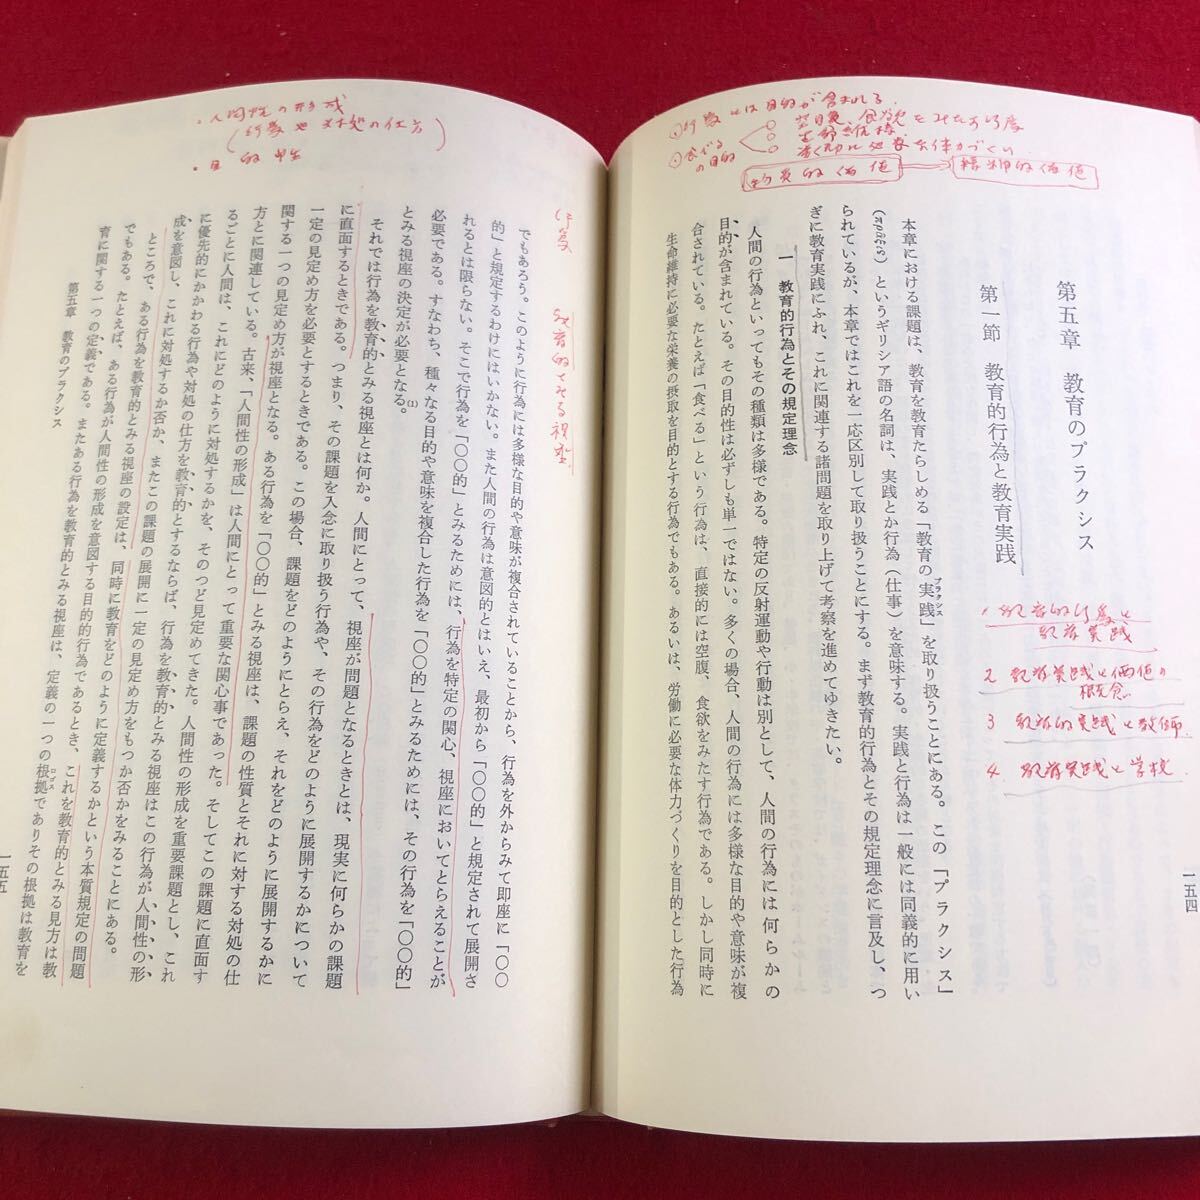 一五四
第五章　教育のプラクシス
第一節　教育的行為と教育実践
本章における課題は、教育を教育たらしめる「教育の実践」を取り扱うことにある。この「プラクシス」
プラクシス
(πρᾶξις) というギリシア語の名詞は、実践とか行為（仕事）を意味する。実践と行為は一般には同義的に用い
られているが、本章ではこれを一応区別して取り扱うことにする。まず教育的行為とその規定理念に言及し、つ
ぎに教育実践にふれ、これに関連する諸問題を取り上げて考察を進めてゆきたい。
一　教育的行為とその規定理念
人間の行為といってもその種類は多様である。特定の反射運動や行動は別として、人間の行為には何らかの
目的が含まれている。その目的性は必ずしも単一ではない。多くの場合、人間の行為には多様な目的や意味が複
合されている。たとえば「食べる」という行為は、直接的には空腹、食欲をみたす行為である。しかし同時に
生命維持に必要な栄養の摂取を目的とする行為でもある。あるいは、労働に必要な体力づくりを目的とした行為
①行為には目的が含まれる
②食べるの目的
空腹、食欲をみたす行為
生命維持
物質的価値
精神的価値
1 教育的行為と
教育実践
2 教育実践と価値の
概念
3 教育的実践と教師
4 教育実践と学校
でもあろう。このように行為には多様な目的や意味が複合されていることから、行為を外からみて即座に「〇〇
的」と規定するわけにはいかない。また人間の行為は意図的とはいえ、最初から「〇〇的」と規定されて展開さ
れるとは限らない。そこで行為を「〇〇的」とみるためには、行為を特定の関心、視座においてとらえることが
必要である。すなわち、種々なる目的や意味を複合した行為を「〇〇的」とみるためには、その行為を「〇〇的」
とみる視座の決定が必要となる。(1)
それでは行為を教育的とみる視座とは何か。人間にとって、視座が問題となるときとは、現実に何らかの課題
に直面するときである。つまり、その課題を入念に取り扱う行為や、その行為をどのように展開するかについて
一定の見定め方を必要とするときである。この場合、課題をどのようにとらえ、それをどのように展開するかに
関する一つの見定め方が視座となる。ある行為を「〇〇的」とみる視座は、課題の性質とそれに対する対処の仕
方とに関連している。古来、「人間性の形成」は人間にとって重要な関心事であった。そしてこの課題に直面す
るごとに人間は、これにどのように対処するかを、そのつど見定めてきた。人間性の形成を重要課題とし、これ
に優先的にかかわる行為や対処の仕方を教育的とするならば、行為を教育的とみる視座はこの行為が、人間性の形
成を意図し、これに対処するか否か、またこの課題の展開に一定の見定め方をもつか否かをみることにある。
ところで、ある行為を教育的とみる視座の設定は、同時に教育をどのように定義するかという本質規定の問題
でもある。たとえば、ある行為が人間性の形成を意図する目的的行為であるとき、これを教育的とみる見方は教
育に関する一つの定義である。またある行為を教育的とみる視座は、定義の一つの根拠でありその根拠は教育を
ロゴス
第五章　教育のプラクシス
一五五
・人間性の形成
（行為や対処の仕方）
・目的性
行為
教育的とみる視座